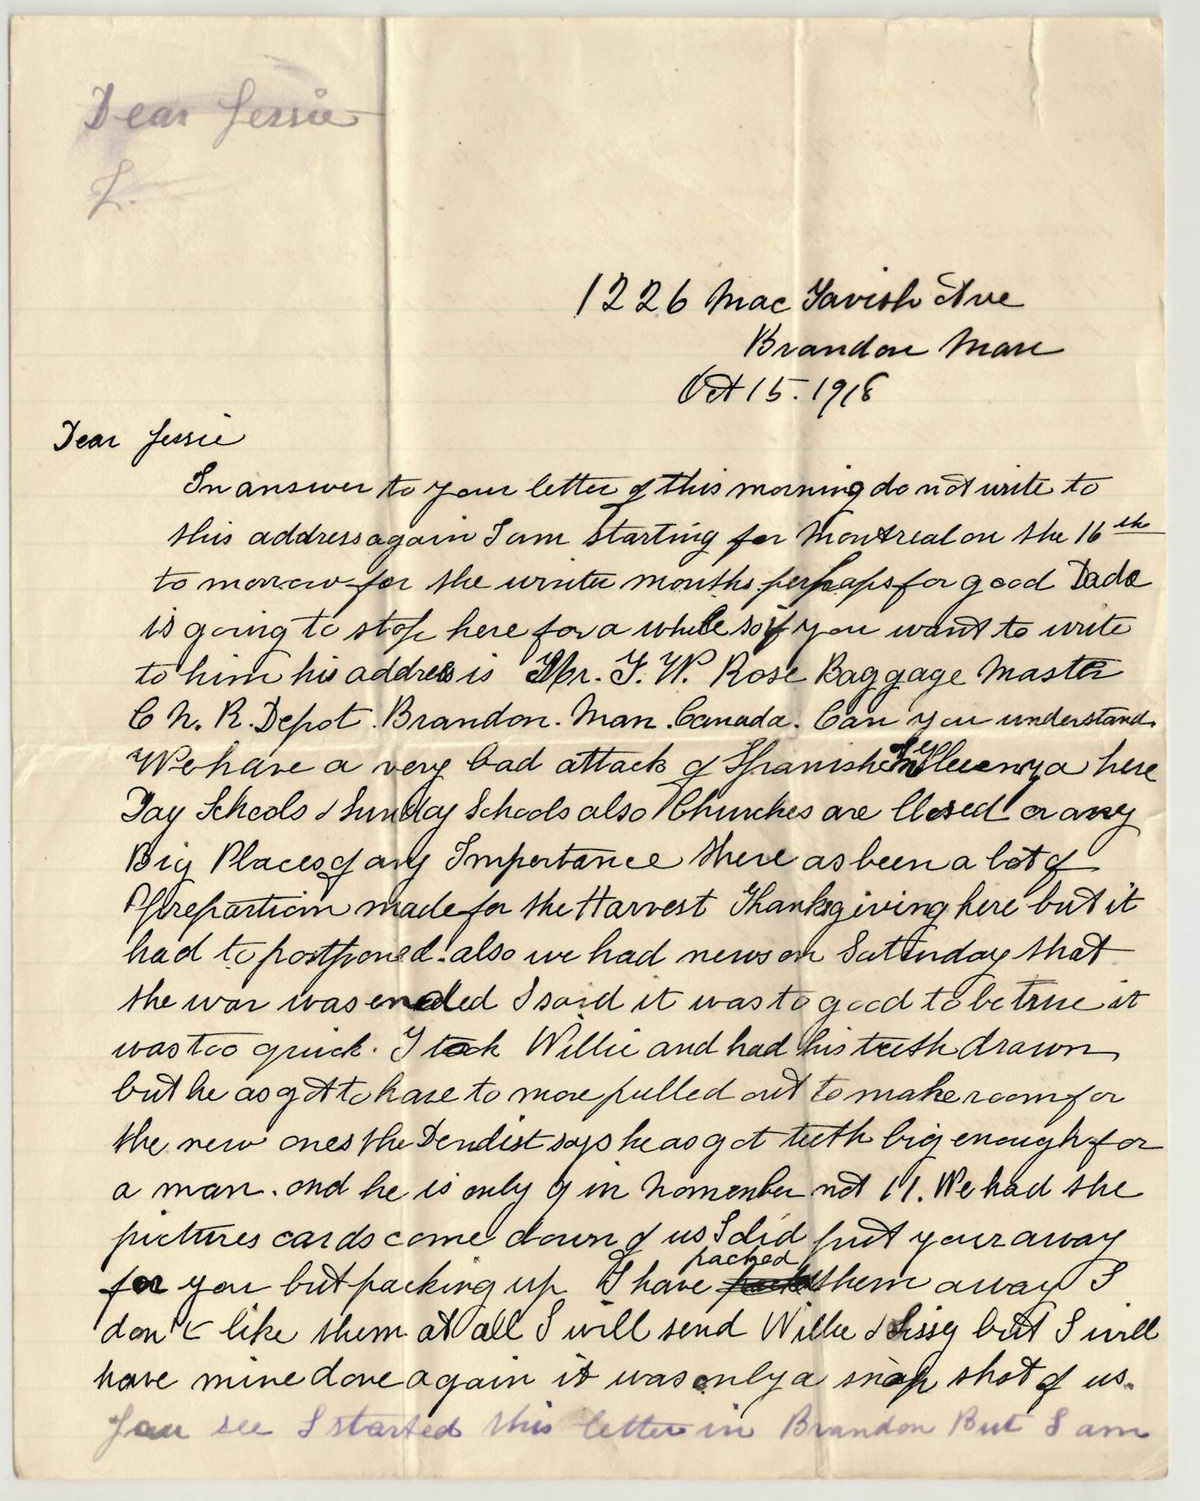 Dear Jessie
I.
1226 Mac Tavish Ave
Brandon Man
Oct 15. 1918
Dear Jessie
In answer to your letter of this morning do not write to
this address again I am starting for Montreal on the 16th
to morrow for the winter months perphaps for good Dada
is going to stop here for a while so if you want to write
to him his address is Mr. F. W. Rose Baggage Master
C N. R. Depot. Brandon. Man. Canada. Can you understand.
We have a very bad attack of Spanish here
Day Schools & Sunday Schools also Churches are Closed or any
Big Places of any Importance there as been a lot of
Prepartion made for the Harvest Thanksgiving here but it
had to postponed. also we had news on Saturday that
the war was ended I said it was to good to be true it
was too quick. I took Willie and had his teeth drawn
but he as got to have to more pulled out to make room for
the new ones the Dendist says he as got teeth big enough for
a man. and he is only 9 in Nomember not 11. We had the
pictures cards come down of us I did put your away
for you but packing up I have packed them away I
don't like them at all I will send Willie & Sissy but I will
have mine done again it was only a snap shot of us.
You see I started this letter in Brandon But I am